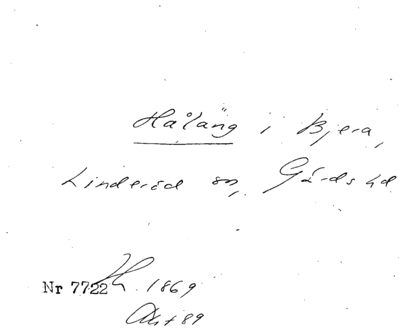 Håläng i Bjera,
Linderöd sn, Gärds hd
Nr 7722 1869
Akt 89